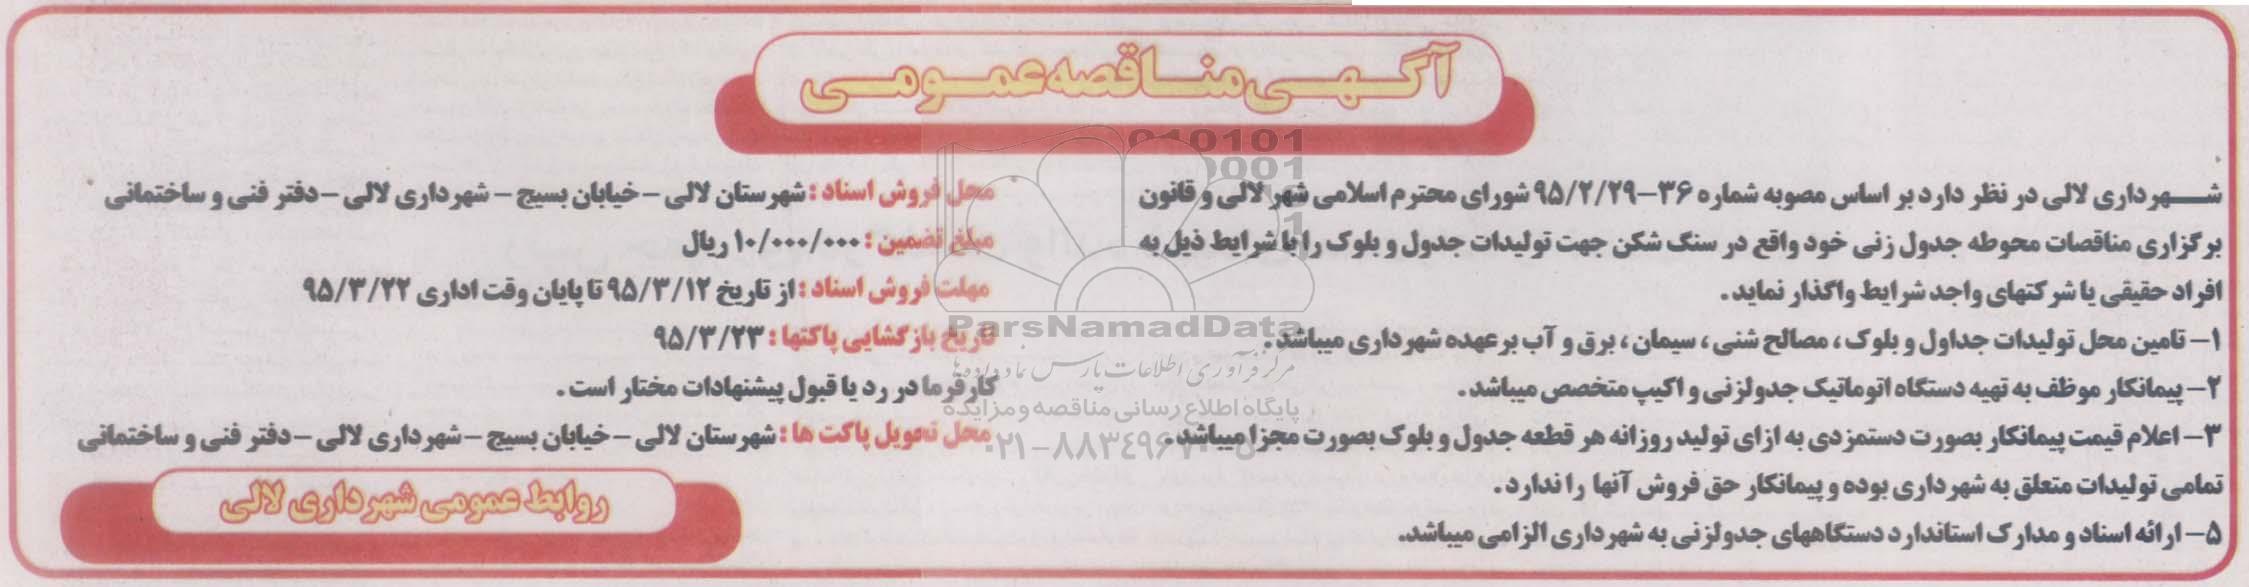 آگهی مناقصه عمومی
شهرداری لالی در نظر دارد بر اساس مصوبه شماره ۳۶–۹۵/۲/۲۹ شورای محترم اسلامی شهر لالی و قانون
برگزاری مناقصات محوطه جدول زنی خود واقع در سنگ شکن جهت تولیدات جدول و بلوک را با شرایط ذیل به
افراد حقیقی یا شرکتهای واجد شرایط واگذار نماید.
۱– تامین محل تولیدات جداول و بلوک ، مصالح شنی ، سیمان ، برق و آب بر عهده شهرداری میباشد.
۲– پیمانکار موظف به تهیه دستگاه اتوماتیک جدولزنی و اکیپ متخصص میباشد.
۳– اعلام قیمت پیمانکار بصورت دستمزدی به ازای تولید روزانه هر قطعه جدول و بلوک بصورت مجزا میباشد.
تمامی تولیدات متعلق به شهرداری بوده و پیمانکار حق فروش آنها را ندارد.
۵– ارائه اسناد و مدارک استاندارد دستگاههای جدولزنی به شهرداری الزامی میباشد.
محل فروش اسناد : شهرستان لالی – خیابان بسیج – شهرداری لالی – دفتر فنی و ساختمانی
مبلغ تضمین : ۱۰/۰۰۰/۰۰۰ ریال
مهلت فروش اسناد : از تاریخ ۹۵/۳/۱۲ تا پایان وقت اداری ۹۵/۳/۲۲
تاریخ بازگشایی پاکتها : ۹۵/۳/۲۳
کارفرما در رد یا قبول پیشنهادات مختار است.
محل تحویل پاکت ها : شهرستان لالی – خیابان بسیج – شهرداری لالی – دفتر فنی و ساختمانی
روابط عمومی شهرداری لالی
ParsNamadData
مرکز فرآوری اطلاعات پارس نماد داده‌ها
پایگاه اطلاع رسانی مناقصه و مزایده